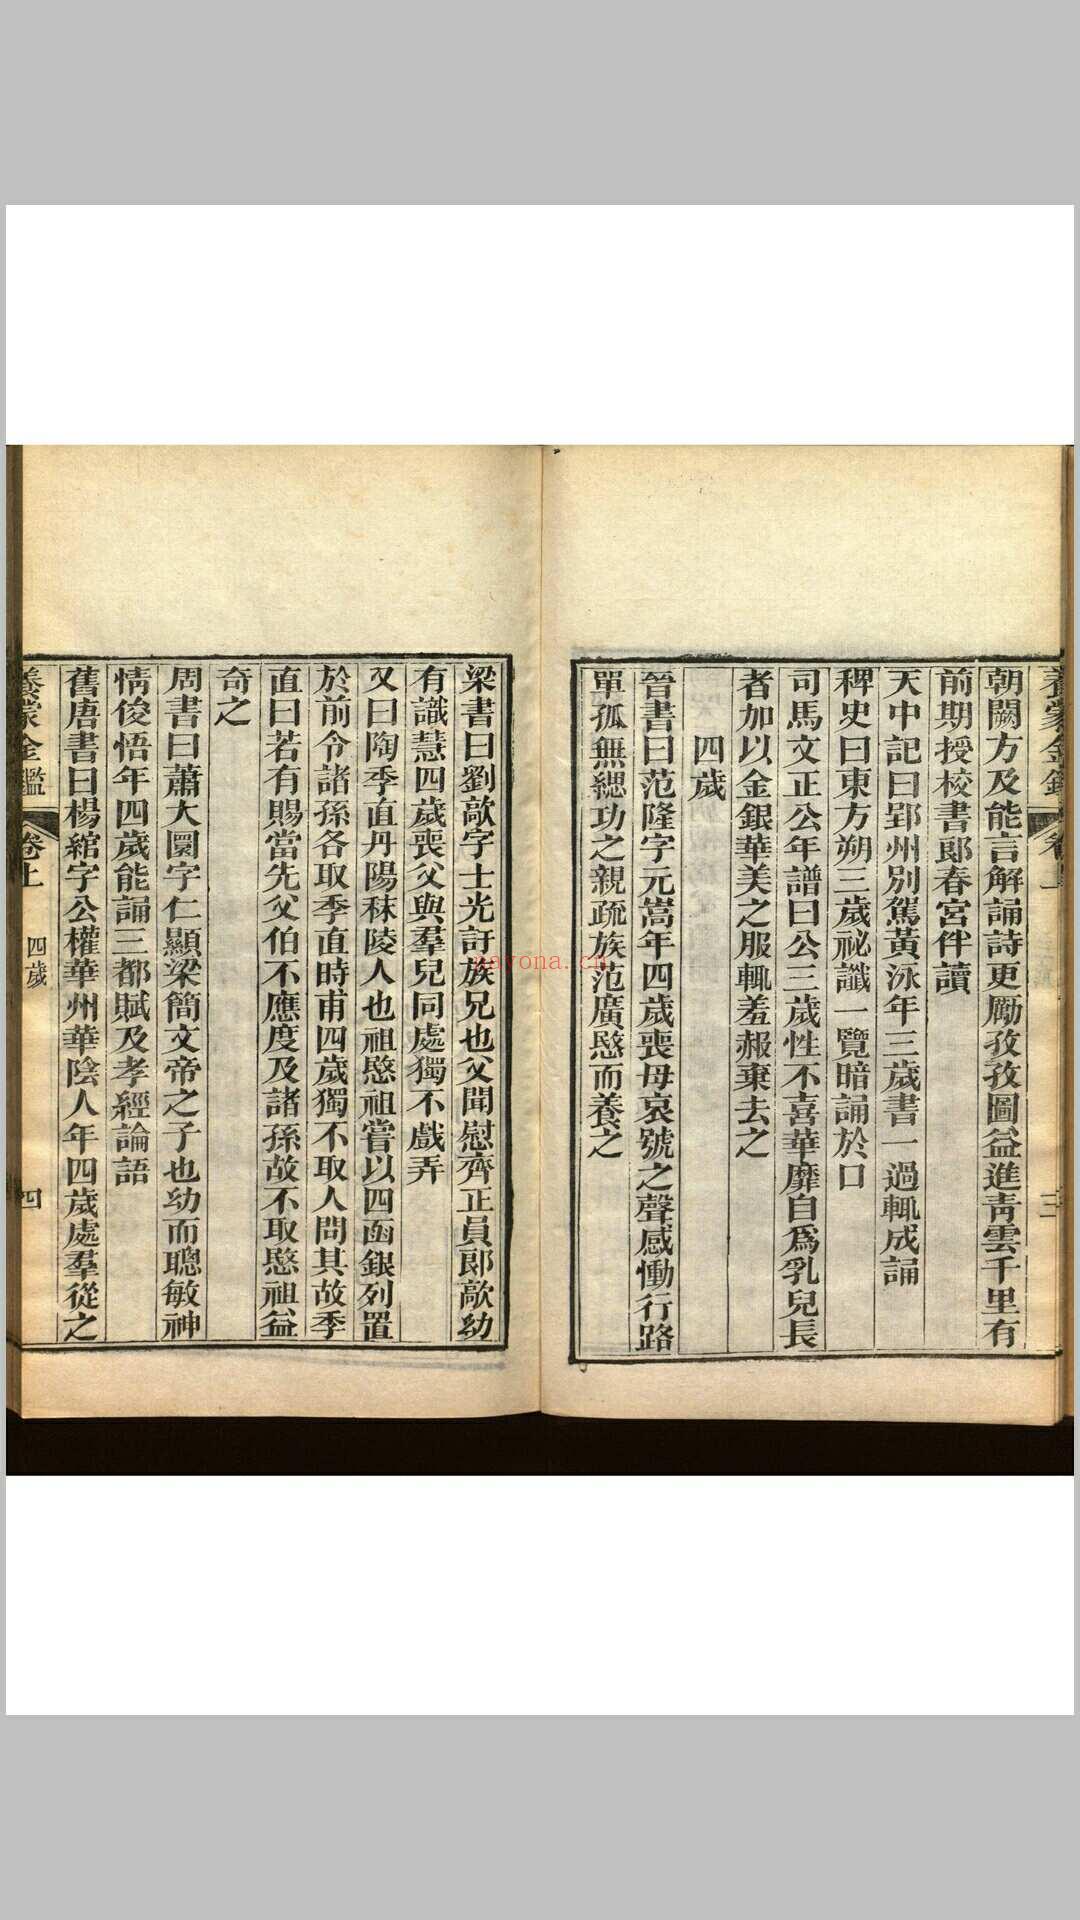 朝闕方及能言解誦詩更勵孜孜圖益進靑雲千里有
前期授校書郎春宮伴讀
天中記曰郢州別駕黃泳年三歲書一過輒成誦
稗史曰東方朔三歲祕讖一覽暗誦於口
司馬文正公年譜曰公三歲性不喜華靡自爲乳兒長
者加以金銀華美之服輒羞赧棄去之
四歲
晉書曰范隆字元嵩年四歲喪母哀號之聲感慟行路
單孤無緦功之親疏族范廣愍而養之
梁書曰劉歊字士光訏族兄也父聞慰齊正員郎歊幼
有識慧四歲喪父與羣兒同處獨不戲弄
又曰陶季直丹陽秣陵人也祖愍祖嘗以四函銀列置
於前令諸孫各取季直時甫四歲獨不取人問其故季
直曰若有賜當先父伯不應度及諸孫故不取愍祖益
奇之
周書曰蕭大圜字仁顯梁簡文帝之子也幼而聰敏神
情俊悟年四歲能誦三都賦及孝經論語
舊唐書曰楊綰字公權華州華陰人年四歲處羣從之
養蒙金鑑 卷上 四歲 四
nayona.cn